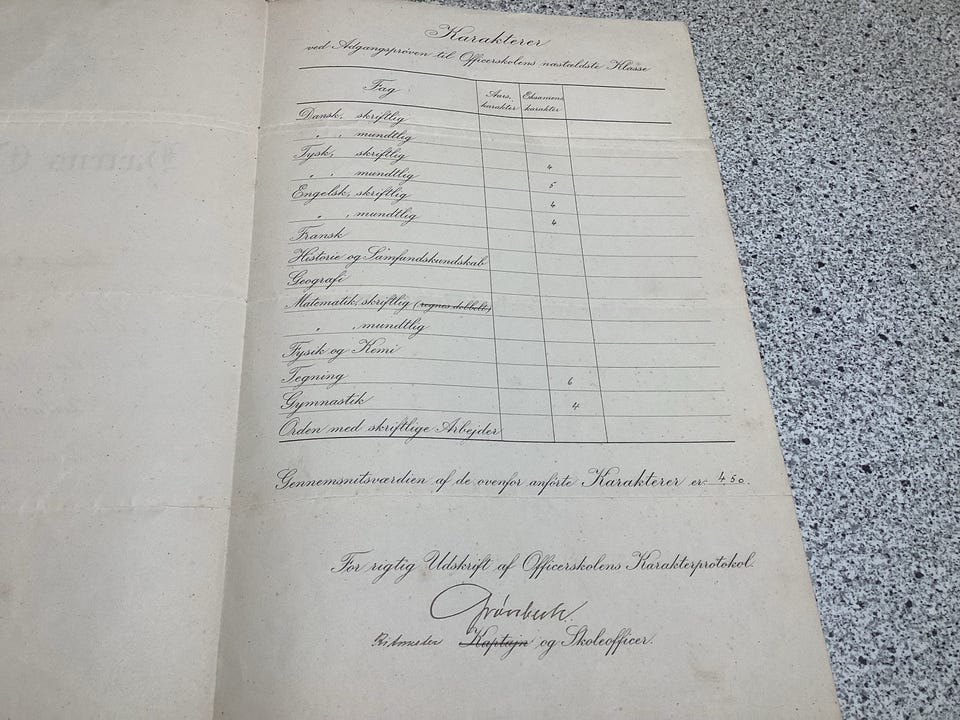 Karakterer
ved Adgangsprøven til Officerskolens næstældste Klasse
Fag Aars- karakter Eksamens karakter
Dansk, skriftlig
" , mundtlig
Tysk, skriftlig 4
" , mundtlig 5
Engelsk, skriftlig 4
" , mundtlig 4
Fransk
Historie og Samfundskundskab
Geografi
Matematik, skriftlig (regnes dobbelt)
" , mundtlig
Fysik og Kemi
Tegning 6
Gymnastik 4
Orden med skriftlige Arbejder
Gennemsnitsværdien af de ovenfor anførte Karakterer er: 4 50.
For rigtig Udskrift af Officerskolens Karakterprotokol.
Grønbech.
Ritmester Kaptajn og Skoleofficer.